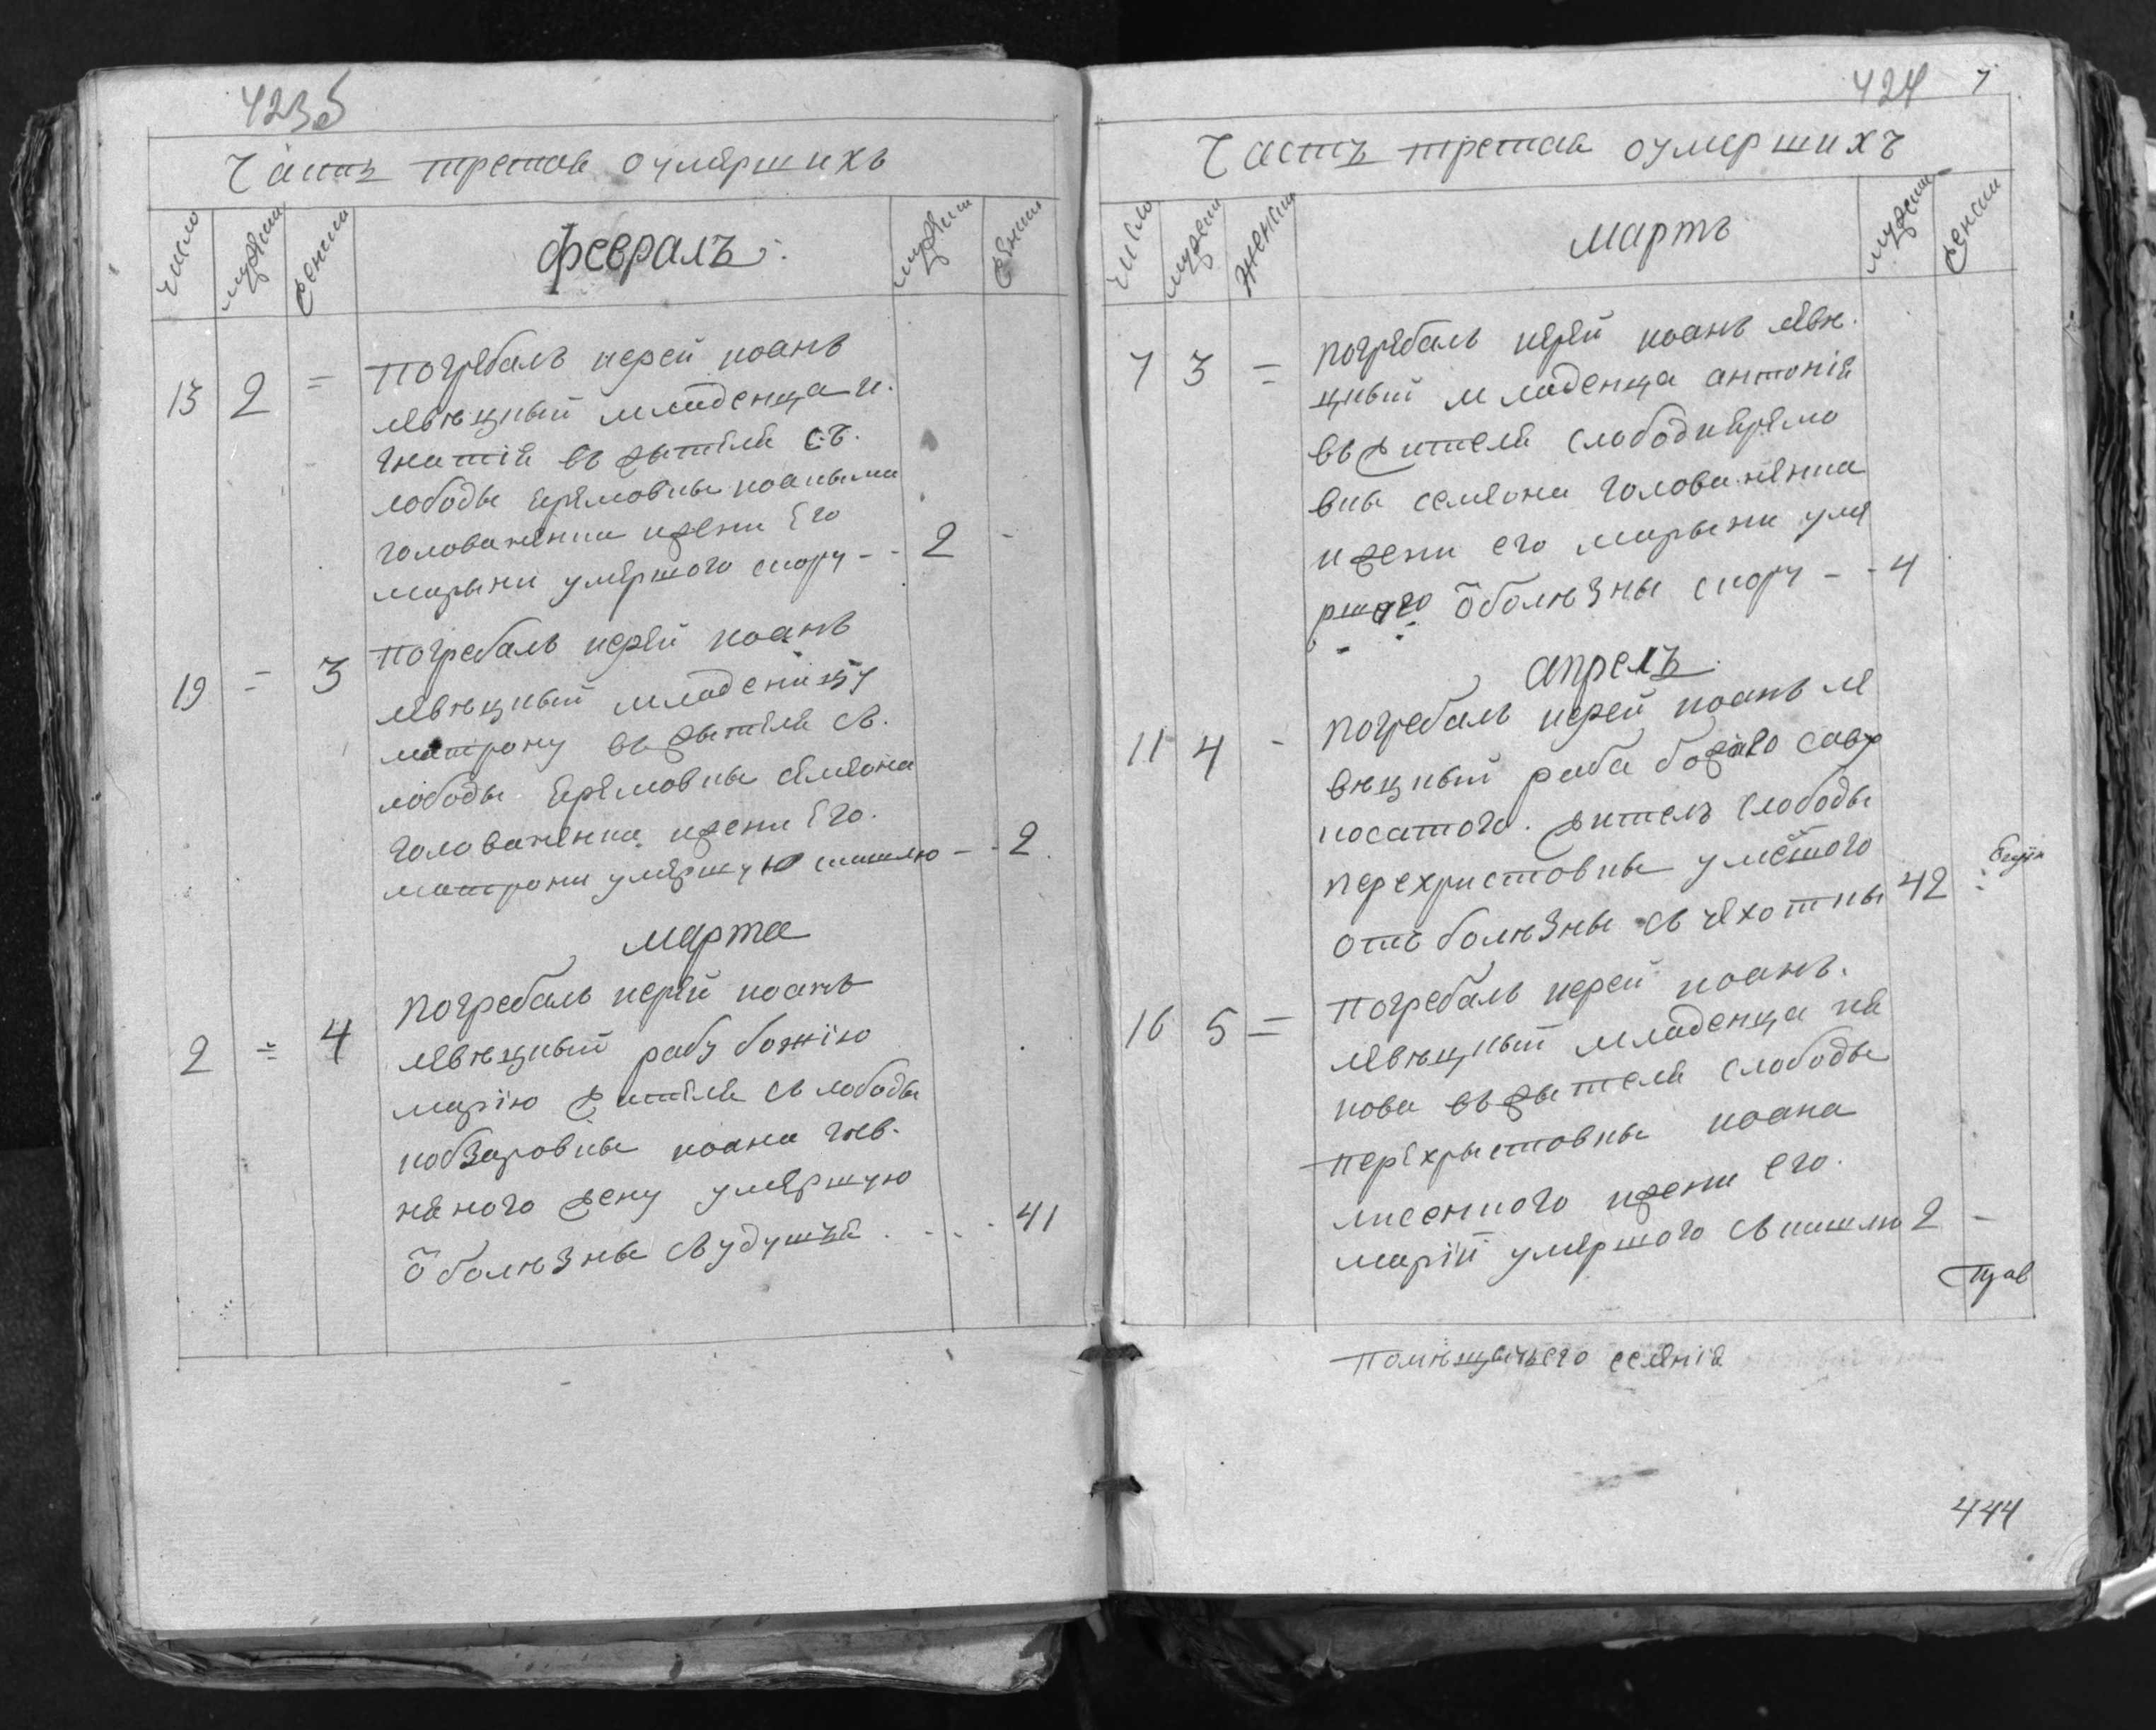 423б
Часть третая оумершихъ
число мужеск женски февралъ мужеск женски
13 2 = погребалъ иерей иоанъ
левѣцкый младенца и
гнатія въ жытеля съ
лободы еремовкы иоаныма
головаченка ижени его
марыни умершого скору - - 2 -
19 = 3 погребалъ иерей иоанъ
левѣцкый младеницу
матрону въ жытеля съ
лободы еремовкы семеона
головаченка ижени его
матрони умершую кашлю - - 2
марта
2 = 4 погребалъ иерей иоанъ
левѣцкый рабу божію
марію жытеля съ лободы
кобзаровкы иоана
ного жену умершую
ѿ болѣзны съ удушья - - - 41
424 7
Часть третая оумершихъ
число мужеск женски мартъ мужеск женски
7 3 = погребалъ иерей иоанъ левѣ
цкый младенца антонія
въ жителя слободиеремо
вкы семеона головаченка
ижени его марыни уме
ршаго ѿболѣзны скору - - 4
апрелъ
11 4 - погребалъ иерей иоанъ ле
вѣцкый раба божіаго савү
косатого житель слободы
перехристовкы умершого
отъ болѣзны съ чехоткы 42
16 5 = погребалъ иерей иоанъ
левѣцкый младенца иа
кова въ жытеля слободы
перехрыстовкы иоана
лисенкого ижени его
марій умершого съ кашлю 2 -
помѣщычьего селенія
444